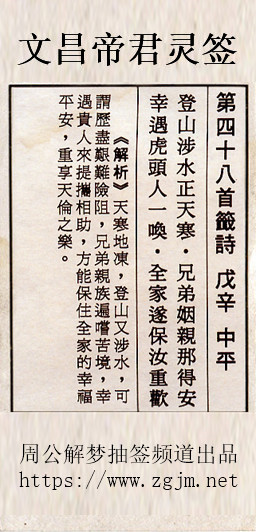 文昌帝君灵签
第四十八首籤詩　戊辛　中平
登山涉水正天寒·兄弟姻親那得安
幸遇虎頭人一喚·全家遂保汝重歡
《解析》天寒地凍，登山又涉水，可
謂歷盡艱難險阻，兄弟親族遍嚐苦境，幸
遇貴人來提攜相助，方能保住全家的幸福
平安，重享天倫之樂。
周公解梦抽签频道出品
https://www.zgjm.net